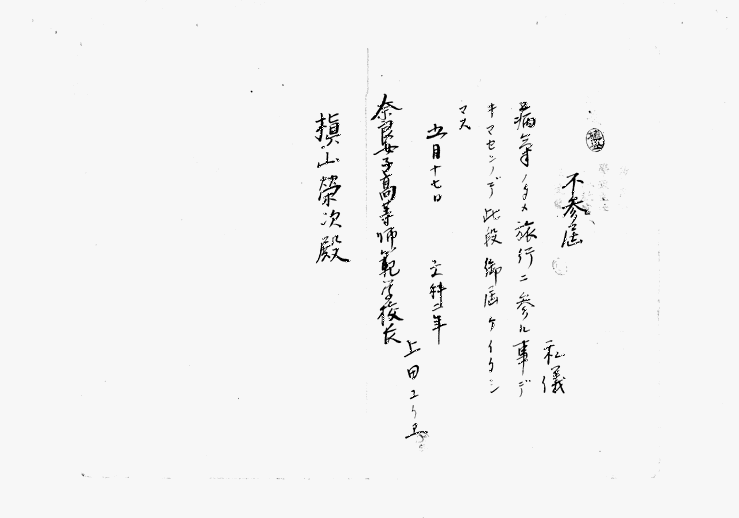 不参届
私儀
病気ノタメ旅行ニ参ル事デ
キマセンノデ此段御届ケイタシ
マス
五月十七日 文科二年
上田ユリ
奈良女子高等師範学校長
槇山榮次殿